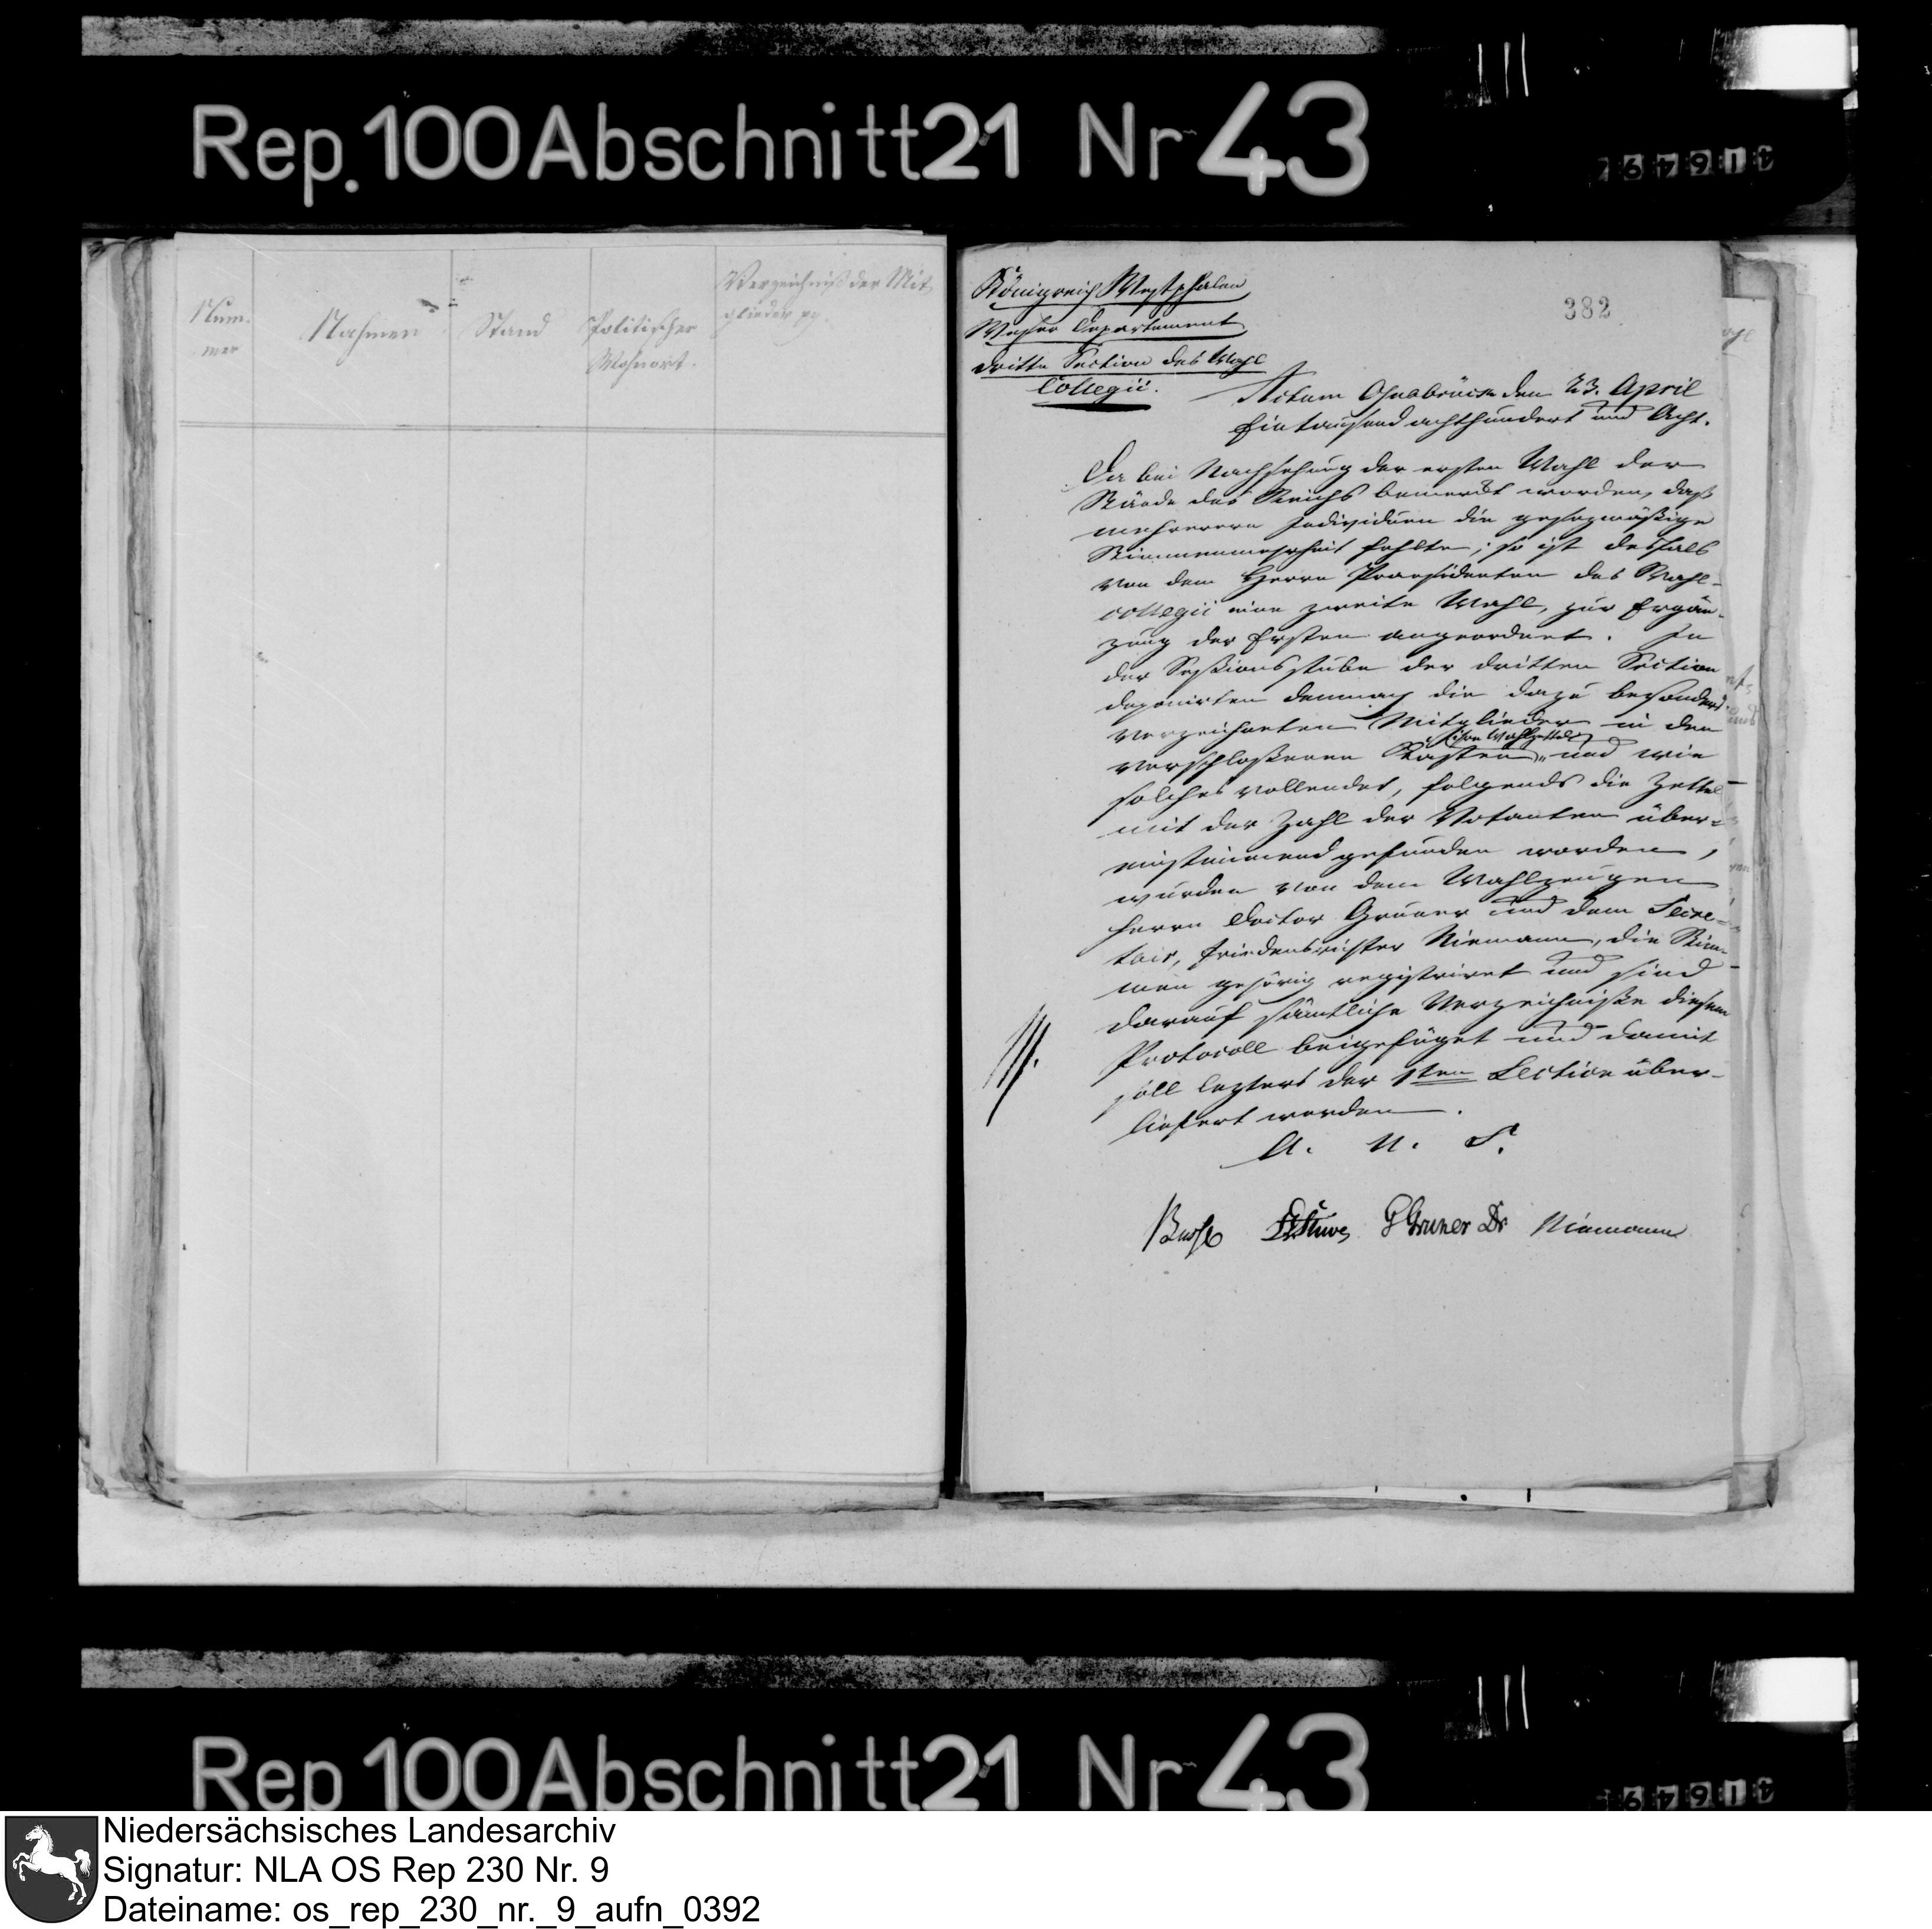 Rep. 100 Abschnitt 21 Nr 43
Num-
mer
Nahmen
Stand
Politischer
Wohnort.
Verzeichniß der Mit
glieder pp.
382
Königreich Westphalen
Weser Departement
dritte Section des Wahl
Collegii.
Actum Osnabrück den 23. April
Eintausend achthundert und Acht.
Da bei Nachsehung der ersten Wahl der
Stände des Reichs bemerkt worden, daß
mehreren Individuen die gesezmäßige
Stimmenmehrheit fehlte; so ist deshalb
von dem Herrn Praesidenten des Wahl-
collegii eine zweite Wahl, zur Ergän-
zung der Ersten angeordnet. In
der Seßionsstube der dritten Section
deponirten demnach die dazu besonders
verzeichneten Mitglieder in den
verschloßenen Kasten ihre Wahlzettel und wie
solches vollendet, folgends die Zettel
mit der Zahl der Votanten über-
einstimmend gefunden worden,
wurden von dem Wahlzeugen
Herrn Doctor Gruner und dem Secre-
tair, Friedensrichter Niemann, die Stim-
men gehörig registriret und sind
darauf sämtliche Verzeichniße diesem
Protocoll beigefüget und damit
soll lezters der 1sten Section über-
liefert werden.
A. u. S.
Stüve G Gruner Dr Niemann
Rep 100 Abschnitt 21 Nr 43
Niedersächsisches Landesarchiv
Signatur: NLA OS Rep 230 Nr. 9
Dateiname: os_rep_230_nr._9_aufn_0392